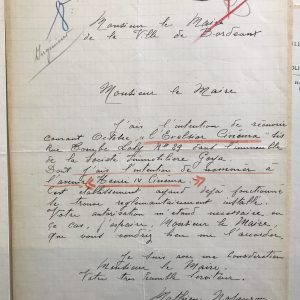 Monsieur le Maire
de la Ville de Bordeaux
Monsieur le Maire
J'ai l'intention de réouvrir
courant Octobre, l'Excelsior Cinéma, sis
Rue Nº 29 dans l'immeuble
de la Société Immobilière Goya.
Dont j'ai l'intention de nommer à
l'avenir « Henri IV Cinéma »
Cet établissement ayant déjà fonctionné
se trouve réglementairement installé.
Votre autorisation m'étant nécessaire, en
ce cas, j'espère, Monsieur le Maire,
que vous voudrez bien me l'accorder.
Je suis avec considération
Monsieur le Maire,
Votre très humble serviteur.